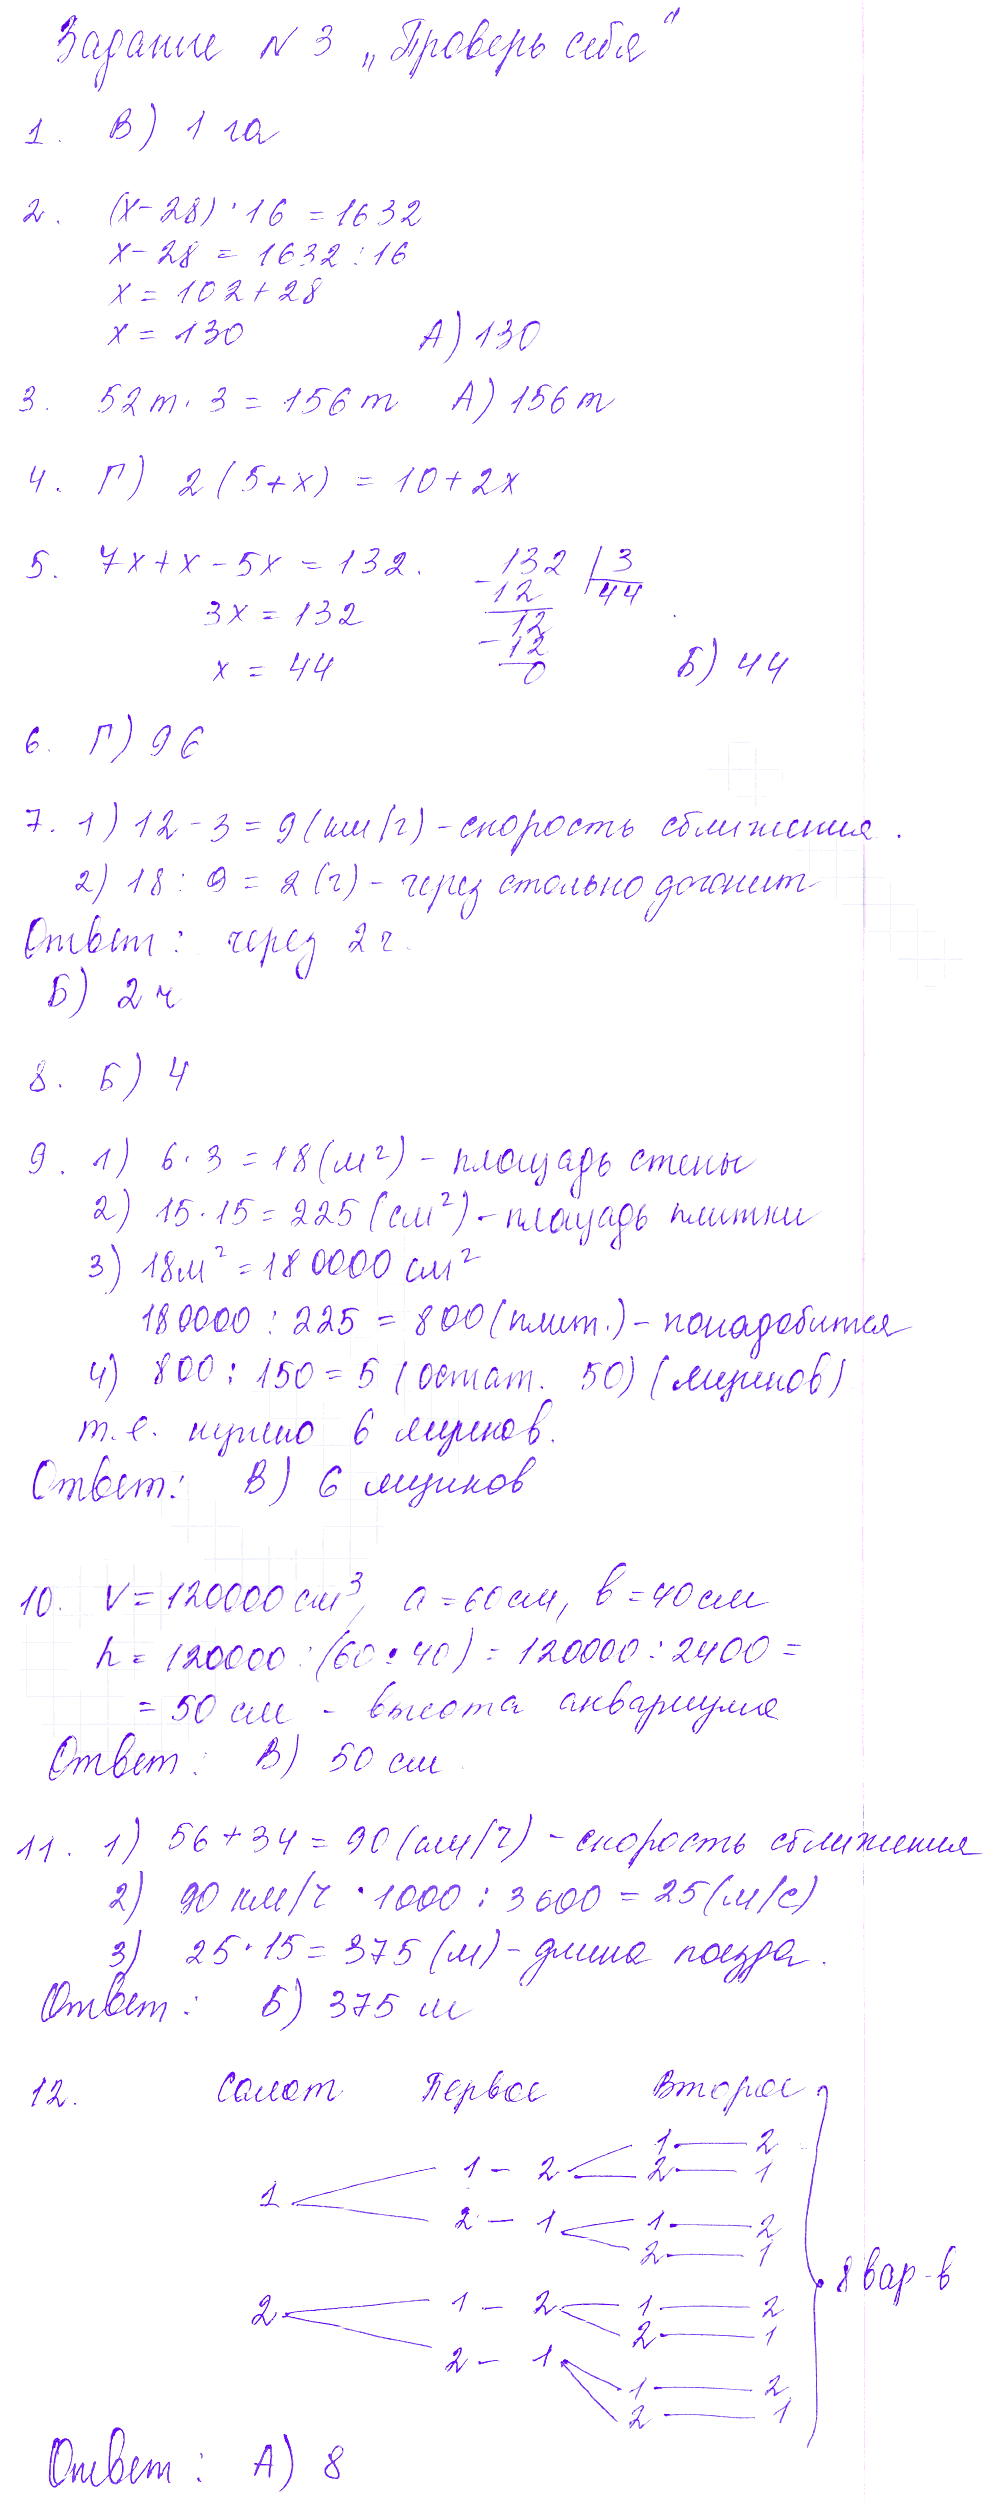 Задание N 3 „Проверь себя"
1. В) 1 га
2. (x - 28) · 16 = 1632
x - 28 = 1632 : 16
x = 102 + 28
x = 130 А) 130
3. 52 т · 3 = 156 т А) 156 т
4. Г) 2 (5 + x) = 10 + 2x
5. 7x + x - 5x = 132. 132 | 3
3x = 132 - 12 44
12
- 12
x = 44 0 Б) 44
6. Г) 96
7. 1) 12 - 3 = 9 (км/ч) - скорость сближения.
2) 18 : 9 = 2 (ч) - через столько догонит
Ответ: через 2 ч.
Б) 2 ч
8. Б) 4
9. 1) 6 · 3 = 18 (м²) - площадь стены
2) 15 · 15 = 225 (см²) - площадь плитки
3) 18 м² = 180000 см²
180000 : 225 = 800 (плит.) - понадобится
4) 800 : 150 = 5 (остат. 50) (ящиков)
т.е. нужно 6 ящиков.
Ответ: В) 6 ящиков
10. V = 120000 см³, a = 60 см, в = 40 см
h = 120000 : (60 · 40) = 120000 : 2400 =
= 50 см - высота аквариума
Ответ: В) 50 см
11. 1) 56 + 34 = 90 (км/ч) - скорость сближения
2) 90 км/ч · 1000 : 3600 = 25 (м/с)
3) 25 · 15 = 375 (м) - длина поезда.
Ответ: Б) 375 м
12. Салат Первое Второе
1 — 2
1 - 2 2 — 1
1
2 - 1 1 — 2
2 — 1
8 вар-в
1 - 2 1 — 2
2 2 — 1
2 - 1
1 — 2
2 — 1
Ответ: А) 8